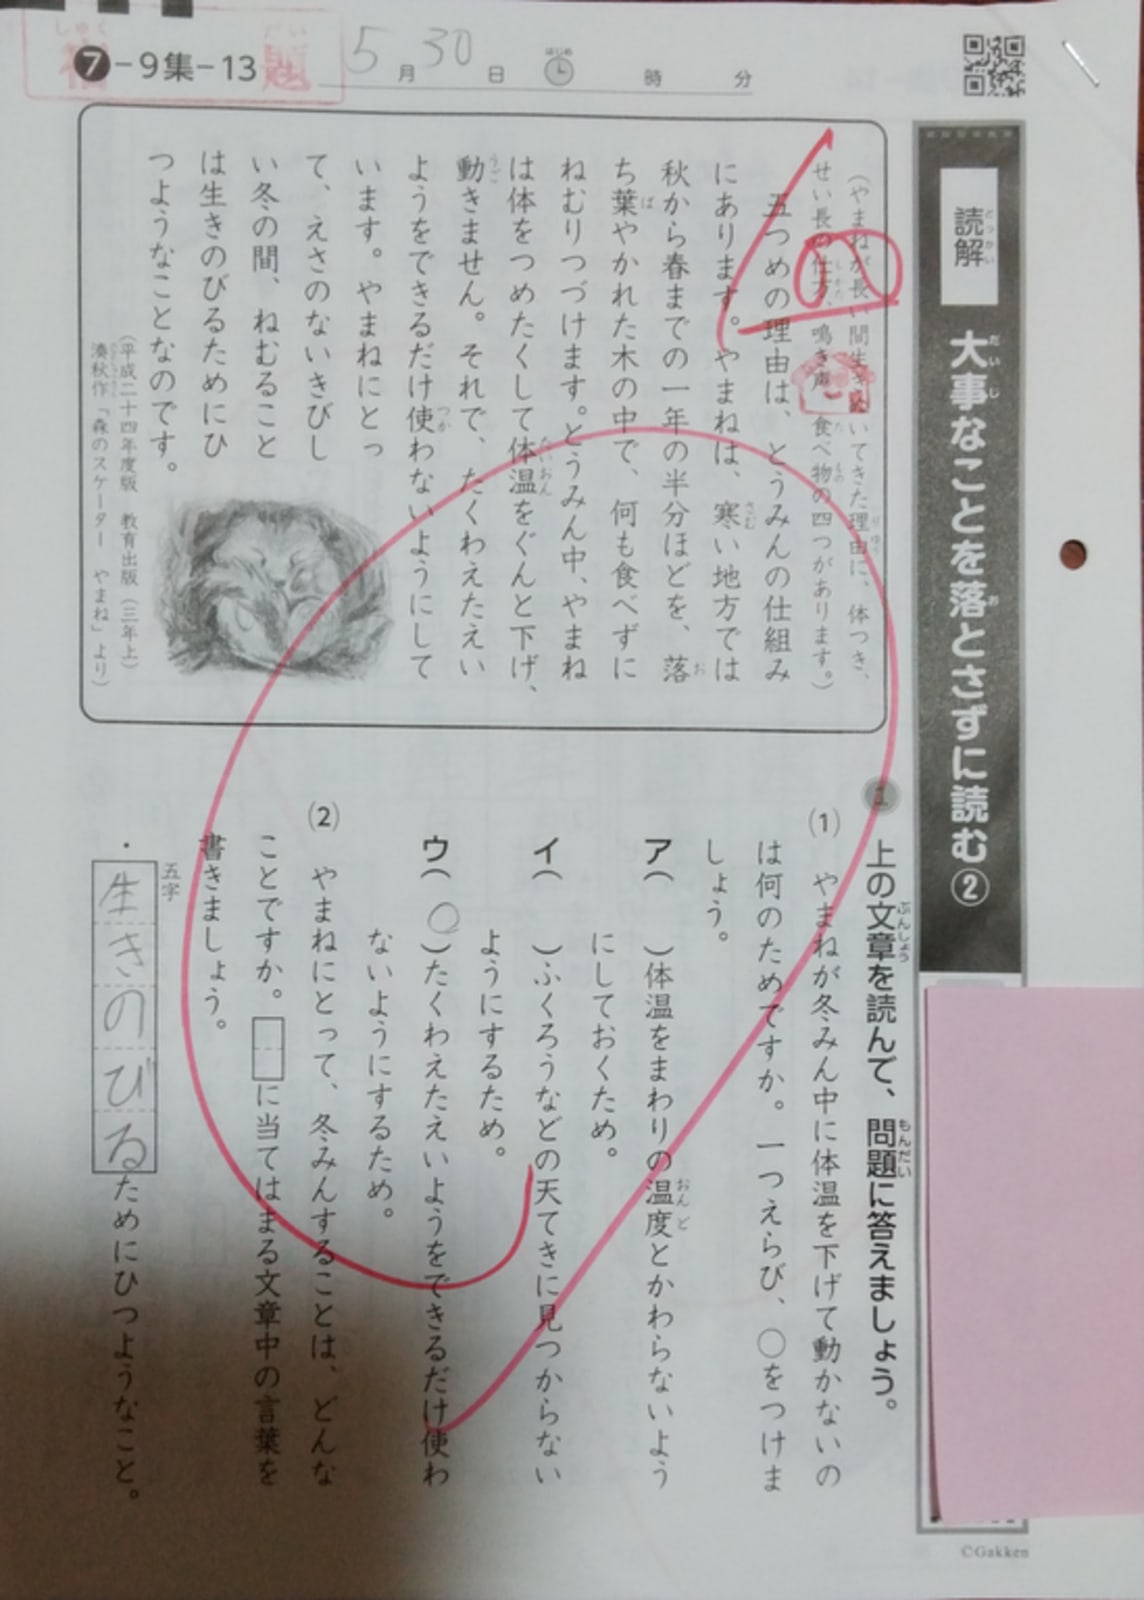 しゅく だい
宿 題
7-9集-13
5月30日 はじめ 時 分
読解 大事なことを落とさずに読む②
(やまねが長い間生きぬいてきた理由に、体つき、
せい長の仕方、鳴き声、食べ物の四つがあります。)
五つめの理由は、とうみんの仕組み
にあります。やまねは、寒い地方では
秋から春までの一年の半分ほどを、落
ち葉やかれた木の中で、何も食べずに
ねむりつづけます。とうみん中、やまね
は体をつめたくして体温をぐんと下げ、
動きません。それで、たくわえたえい
ようをできるだけ使わないようにして
います。やまねにとっ
て、えさのないきびし
い冬の間、ねむること
は生きのびるためにひ
つようなことなのです。
(平成二十四年度版 教育出版(三年上)
湊秋作「森のスケーター やまね」より)
1 上の文章を読んで、問題に答えましょう。
(1) やまねが冬みん中に体温を下げて動かないの
は何のためですか。一つえらび、○をつけま
しょう。
ア( )体温をまわりの温度とかわらないよう
にしておくため。
イ( )ふくろうなどの天てきに見つからない
ようにするため。
ウ(○)たくわえたえいようをできるだけ使わ
ないようにするため。
(2) やまねにとって、冬みんすることは、どんな
ことですか。□に当てはまる文章中の言葉を
書きましょう。
五字
・生きのびるためにひつようなこと。
©Gakken